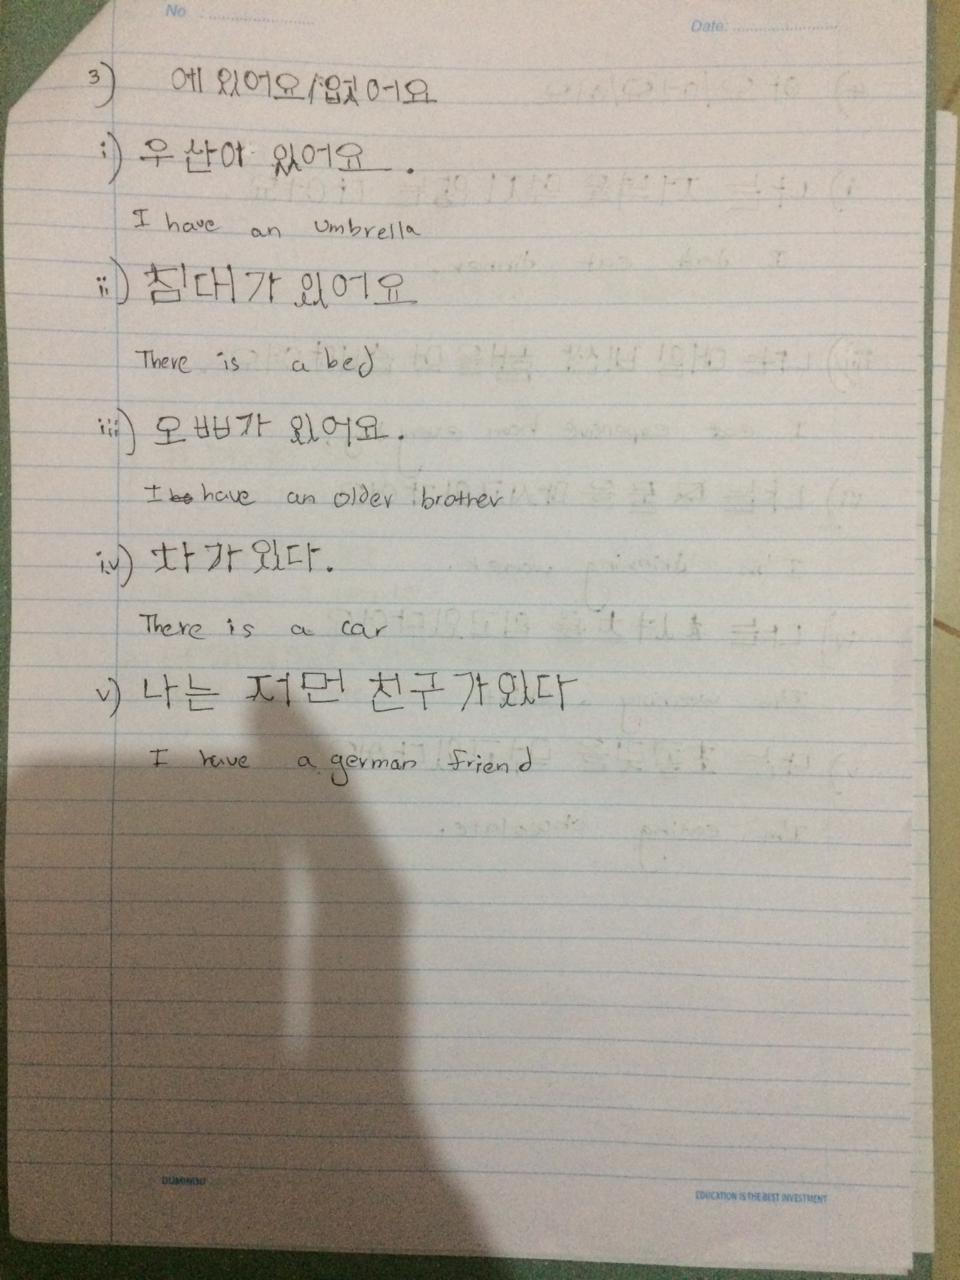 No
Date:
3) 에 있어요/없어요
i) 우산아 있어요.
I have an umbrella
ii) 침대가 있어요
There is a bed
iii) 오빠가 있어요.
I have an older brother
iv) 차가 있다.
There is a car
v) 나는 저먼 친구가 있다
I have a german friend
EDUCATION IS THE BEST INVESTMENT